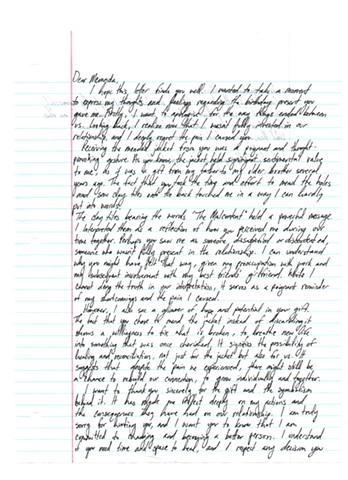 Dear Memorga,
I hope this letter finds you well. I wanted to take a moment
to express my thoughts and feelings regarding the birthday present you
gave me. Firstly, I want to apologise for the way things ended between
us. Looking back, I realise now that I wasn't fully invested in our
relationship, and I deeply regret the pain I caused you.
Receiving the mended jacket from you was a poignant and thought-
provoking gesture. As you know, the jacket held significant sentimental value
to me, as it was a gift from my father to my older brother several
years ago. The fact that you took the time and effort to mend the holes
and sew clay tiles onto the back touched me in a way I can hardly
put into words.
The clay tiles bearing the words "The Malcontent" held a powerful message.
I interpreted them as a reflection of how you perceived me during our
time together. Perhaps you saw me as someone dissatisfied or discontented,
someone who wasn't fully present in the relationship. I can understand
why you might have felt that way, given my preoccupation with work and
my subsequent involvement with my best friend's girlfriend. While I
cannot deny the truth in your interpretation, it serves as a poignant reminder
of my shortcomings and the pain I caused.
However, I also see a glimmer of hope and potential in your gift.
The fact that you chose to mend the jacket instead of discarding it
shows a willingness to fix what is broken, to breathe new life
into something that was once cherished. It signifies the possibility of
healing and reconciliation, not just for the jacket but also for us. It
suggests that despite the pain we experienced, there might still be
a chance to rebuild our connection, to grow individually and together.
I want to thank you sincerely for the gift and the symbolism
behind it. It has made me reflect deeply on my actions and
the consequences they have had on our relationship. I am truly
sorry for hurting you, and I want you to know that I am
committed to changing and becoming a better person. I understand
if you need time and space to heal, and I respect any decision you